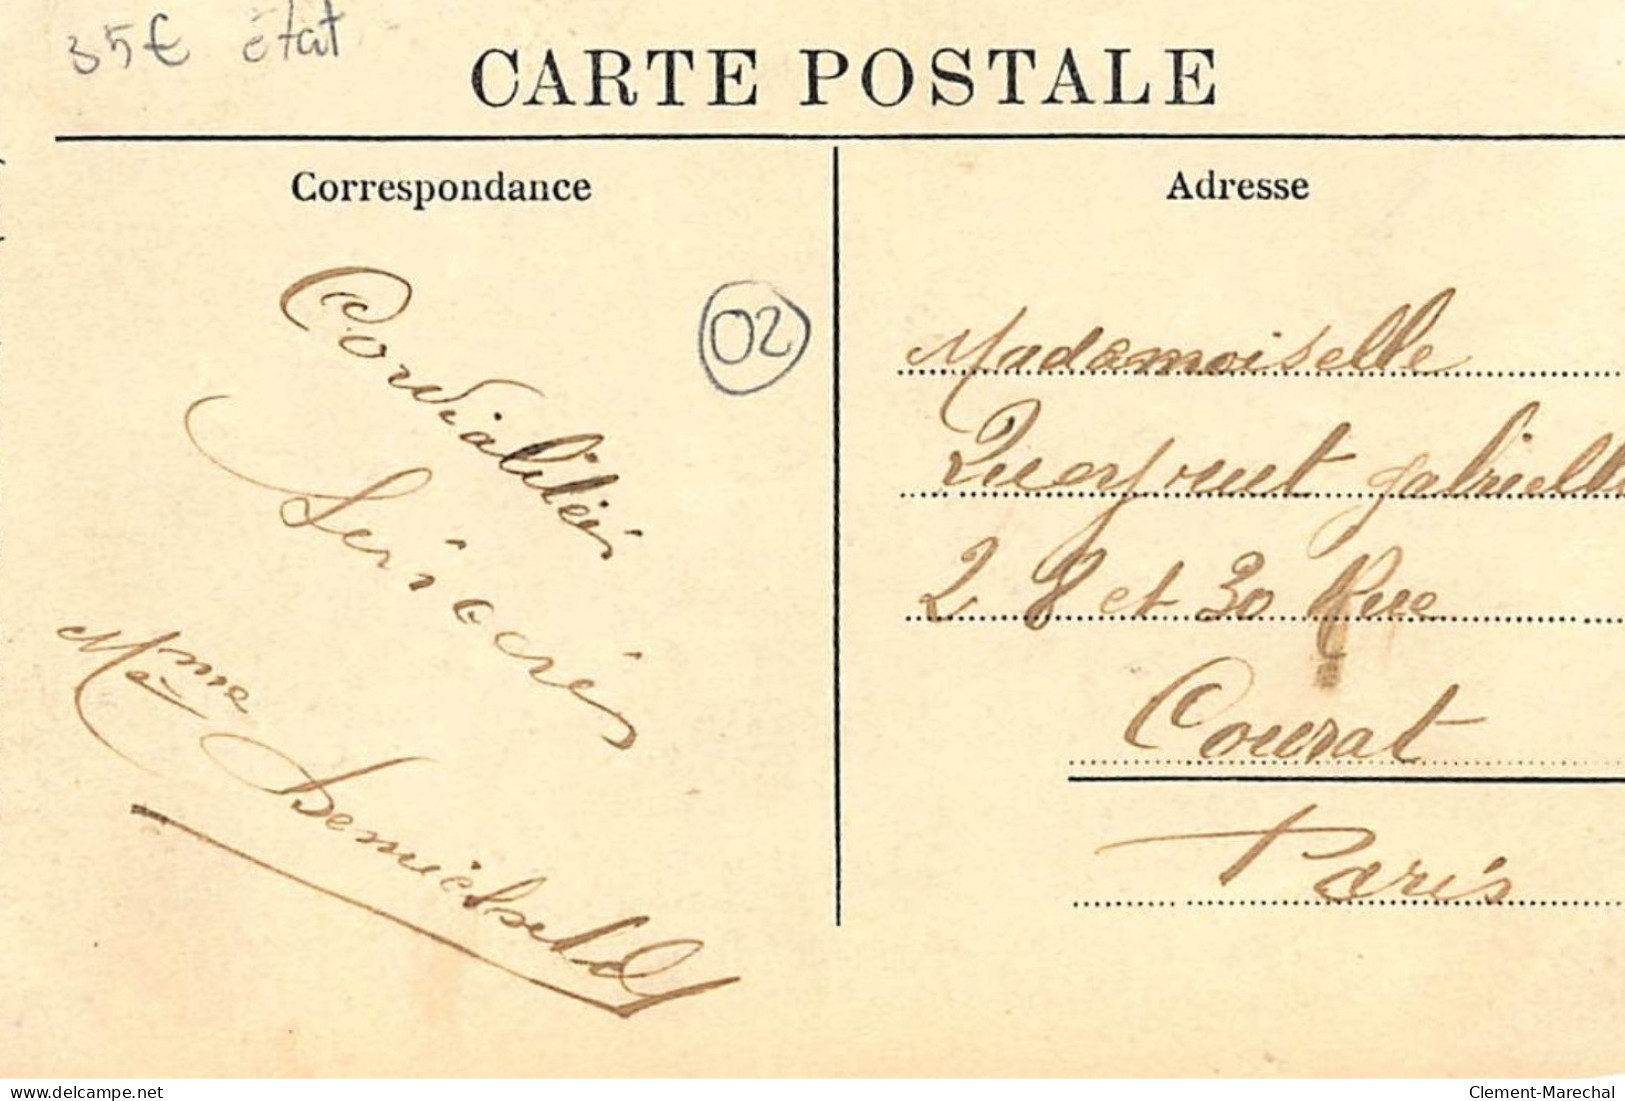 35€ état
CARTE POSTALE
Correspondance
Adresse
Cordialités
Sincères
Mme
02
Madamoiselle
gabrielle
28 et 30 Rue
Courat
Paris
delcampe.net
Clement-Marechal